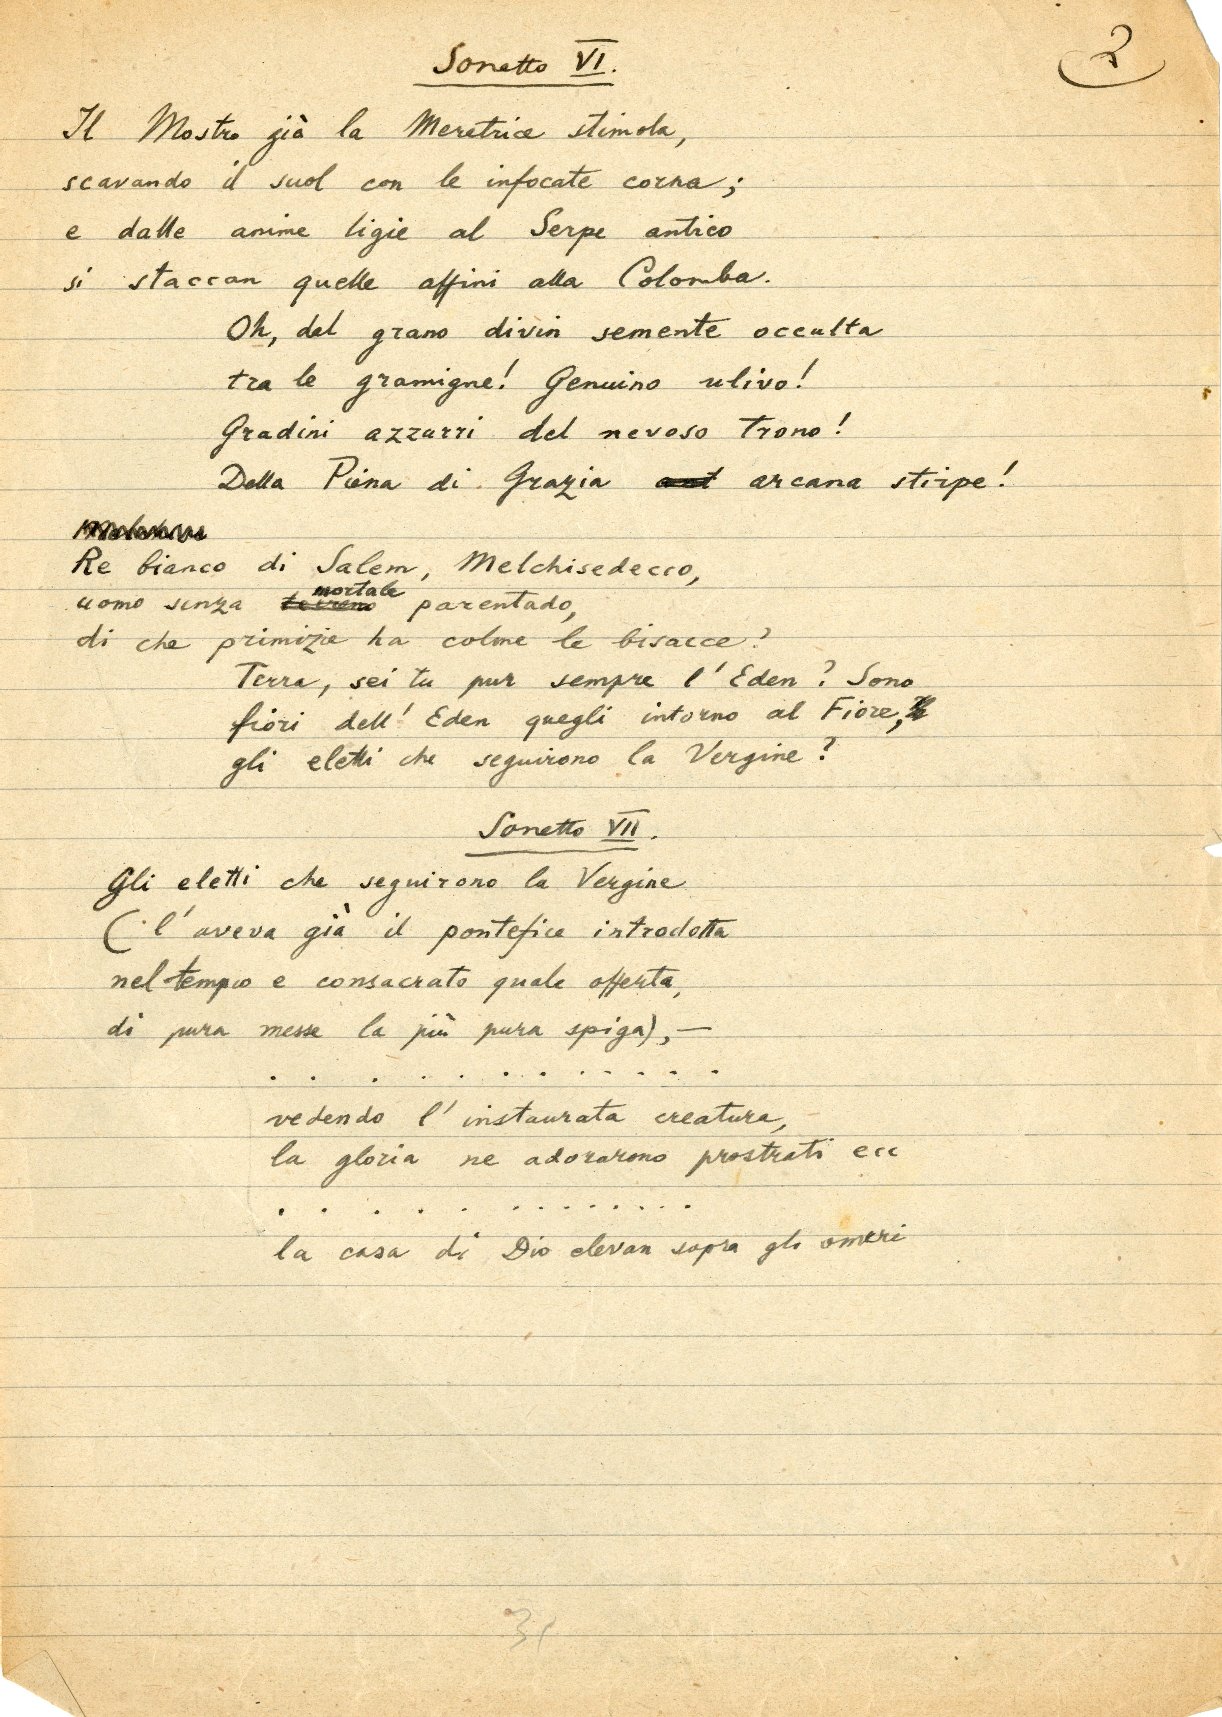 2
Sonetto VI.
Il Mostro già la Meretrice stimola,
scavando il suol con le infocate corna;
e dalle anime ligie al Serpe antico
si staccan quelle affini alla Colomba.
Oh, del grano divin semente occulta
tra le gramigne! Genuino ulivo!
Gradini azzurri del nevoso trono!
Della Piena di Grazia arcana stirpe!
Re bianco di Salem, Melchisedecco,
mortale
uomo senza terreno parentado,
di che primizie ha colme le bisacce?
Terra, sei tu pur sempre l'Eden? Sono
fiori dell'Eden quegli intorno al Fiore,
gli eletti che seguirono la Vergine?
Sonetto VII.
Gli eletti che seguirono la Vergine
(l'aveva già il pontefice introdotta
nel tempio e consacrato quale offerta,
di pura messe la più pura spiga), —
. . . . . . . . . . . . .
vedendo l'instaurata creatura,
la gloria ne adorarono prostrati ecc
. . . . . . . . . . . . .
la casa di Dio elevan sopra gli omeri
31